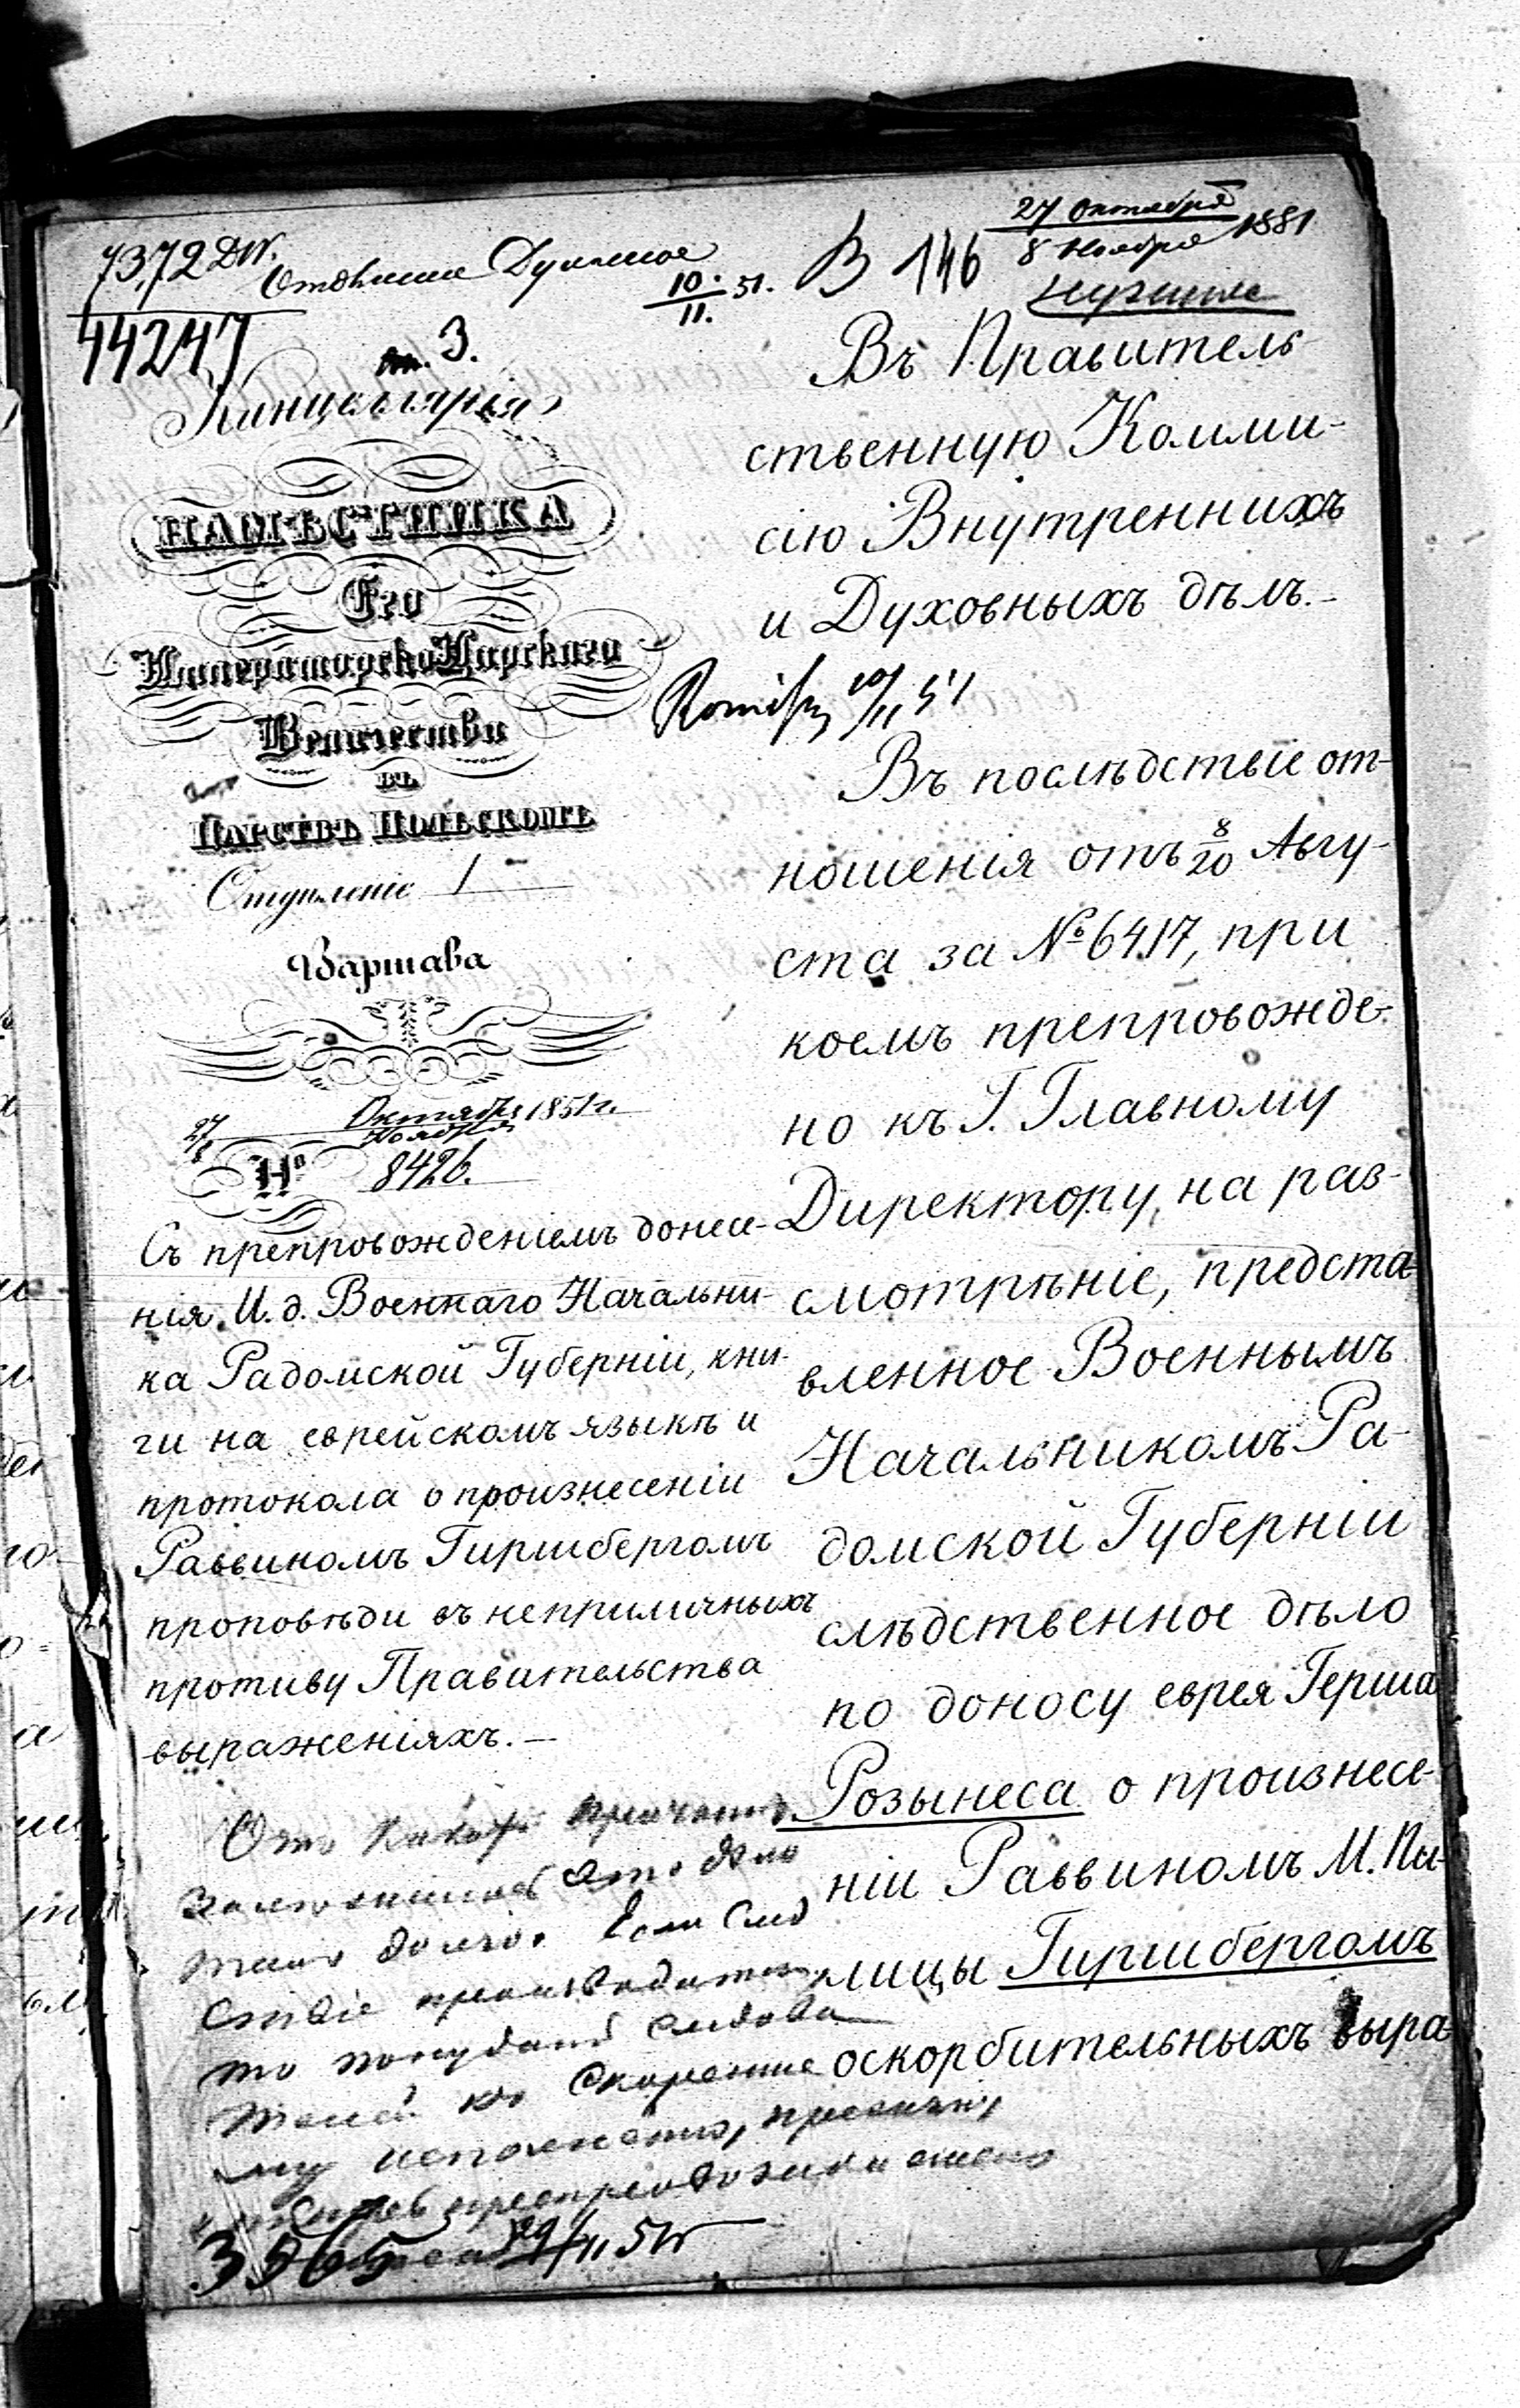 7372 DW.
44247
10./11. 51.
В 146
27 Октября
8 Ноября 1851
3.
Канцелярія
НАМѢСТНИКА
Его
Императорско Царскаго
Величества
ВЪ
ЦАРСТВѢ ПОЛЬСКОМЪ
Отдѣленіе 1
Варшава
27/8 Октября/Ноября 1851 г.
№ 8426.
Съ препровожденіемъ донесе-
нія И. д. Военнаго Начальни-
ка Радомской Губерніи, кни-
ги на еврейскомъ языкѣ и
протокола о произнесеніи
Раввиномъ Гиршбергомъ
проповѣди въ неприличныхъ
противу Правительства
выраженіяхъ.—
Въ Правитель-
ственную Комми-
сію Внутреннихъ
и Духовныхъ дѣлъ.—
10/11 51
Въ послѣдствіе от-
ношенія отъ 8/20 Авгу-
ста за № 6417, при
коемъ препровожде-
но къ Г. Главному
Директору, на раз-
смотрѣніе, предста-
вленное Военнымъ
Начальникомъ Ра-
домской Губерніи
слѣдственное дѣло
по доносу еврея Герша
Розынеса о произнесе-
ніи Раввиномъ М. Пи-
лицы Гиршбергомъ
оскорбительныхъ выра
это дѣло
долго. Если Слѣд
ствіе производится
то
къ Скорѣйше
му
3565
29/11 51